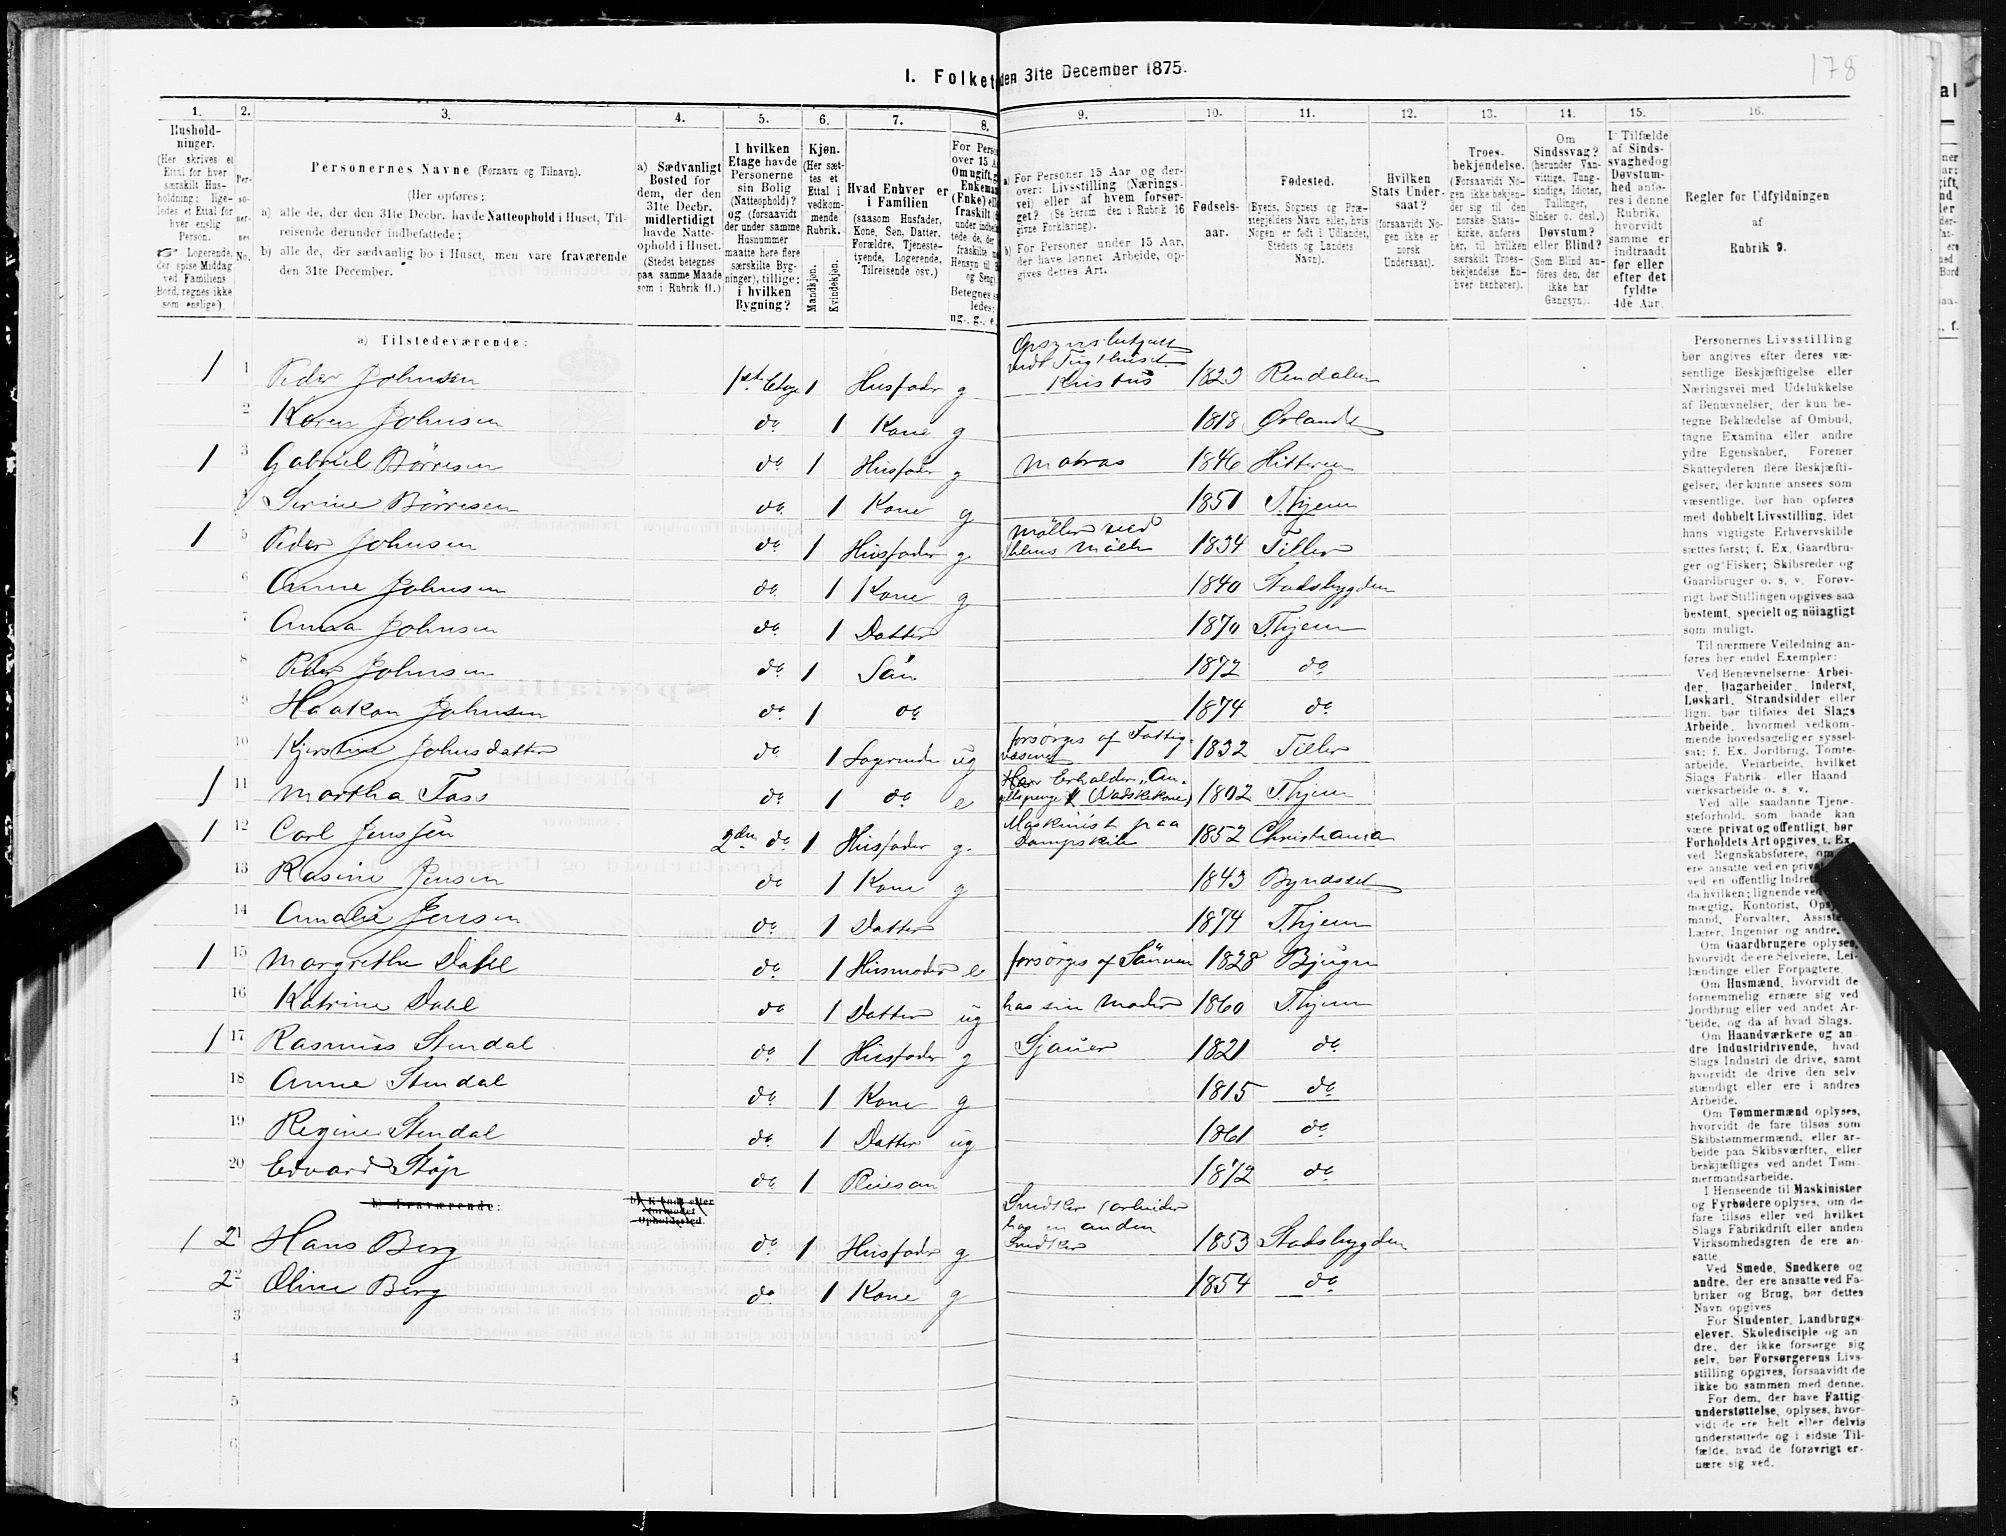 I. Folket
den 31te December 1875.
178
1. 2. 3. 4. 5. 6. 7. 8. 9. 10. 11. 12. 13. 14. 15. 16.
Hushold-
ninger.
(Her skrives et
Ettal for hver
særskilt Hus-
holdning; lige-
ledes et Ettal for
hver enslig
Person.
Logerende,
der spise Middag
ved Familiens
Bord, regnes ikke
som enslige).
Per-
so-
ner-
nes
No.
Personernes Navne (Fornavn og Tilnavn).
(Her opføres:
a) alle de, der den 31te Decbr. havde Natteophold i Huset, Til-
reisende derunder indbefattede;
b) alle de, der sædvanlig bo i Huset, men vare fraværende
den 31te December.
a) Sædvanligt
Bosted for
dem, der den
31te Decbr.
midlertidigt
havde Natte-
ophold i Huset.
(Stedet betegnes
paa samme Maade
som i Rubrik 11.)
I hvilken
Etage havde
Personerne
sin Bolig
(Natteophold)?
og (forsaavidt
der under samme
Husnummer
maatte høre flere
særskilte Byg-
ninger), tillige:
i hvilken
Bygning?
Kjøn.
(Her sæt-
tes et
Ettal i
vedkom-
mende
Rubrik.
Mandkjøn.
Kvindekjøn.
Hvad Enhver er
i Familien
(saasom Husfader,
Kone, Søn, Datter,
Forældre, Tjeneste-
tyende, Logerende,
Tilreisende osv.)
For Perso
over 15 A
Om ugift, g
Enkema
(Enke) elle
fraskilt
Betegnes s
ledes:
ug., g., e.
a) For Personer 15 Aar og der-
over: Livsstilling (Nærings-
vei) eller af hvem forsør-
get? (Se herom den i Rubrik 16
givne Forklaring).
b) For Personer under 15 Aar,
der have lønnet Arbeide, op-
gives dettes Art.
Fødsels-
aar.
Fødested.
(Byens, Sognets og Præ-
stegjeldets Navn eller, hvis
Nogen er født i Udlandet,
Stedets og Landets
Navn).
Hvilken
Stats Under-
saat?
(forsaavidt No-
gen ikke er
norsk
Undersaat).
Troes-
bekjendelse.
(Forsaavidt No-
gen ikke bekjen-
der sig til den
norske Stats-
kirke, anføres
her, til hvilken
særskilt Troes-
bekjendelse En-
hver henhører).
Om
Sindssvag?
(herunder Van-
vittige, Tung-
sindige, Idioter,
Tullinger,
Sinker o. desl.)
Døvstum?
eller Blind?
(Som Blind an-
føres den, der
ikke har
Gangsyn).
I Tilfælde
af Sinds-
svaghed og
Døvstum-
hed anfø-
res i denne
Rubrik,
hvorvidt
samme er
indtraadt
før eller
efter det
fyldte
4de Aar.
Regler for Udfyldningen
af
Rubrik 9.
a) Tilstedeværende:
1 1 Peder Johnsen 1ste Etage 1 Husfader g Opsynsbetjent ved Tugthuset 1823 Rendalen
2 Karen Johnsen do 1 Kone g 1818 Ørlandet
1 3 Gabriel Börresen do 1 Husfader g Matros 1846 Hitteren
4 Serine Börresen do 1 Kone g 1851 Thjem
1 5 Peder Johnsen do 1 Husfader g Møller ved Ihlens Mölle 1834 Tiller
6 Anne Johnsen do 1 Kone g 1840 Stadsbygden
7 Anna Johnsen do 1 Datter 1870 Thjem
8 Peder Johnsen do 1 Sön 1872 do
9 Haakon Johnsen do 1 do 1874 do
10 Kjerstine Johnsdatter do 1 Logerende ug forsørges af Fattigvæsenet 1832 Tiller
1 11 Martha Fass do 1 do e Erholder (Vadskekone) 1802 Thjem
1 12 Carl Jenssen 2den do 1 Husfader g. Maskinist paa Dampskib 1852 Christiania
13 Rasine Jensen do 1 Kone g 1843 Byndset
14 Amalie Jensen do 1 Datter 1874 Thjem
1 15 Margrethe Dahl do 1 Husmoder e forsørges af Sønnen 1828 Bjugn
16 Katrine Dahl do 1 Datter ug hos sin Moder 1860 Thjem
1 17 Rasmus Stendal do 1 Husfader g Sjauer 1821 do
18 Anne Stendal do 1 Kone g 1815 do
19 Regine Stendal do 1 Datter ug 1861 do
20 Edvard Stöp do 1 Pleiesøn 1872 do
b) Fraværende:
b) Kjendt eller
formodet
Opholdssted.
1 21 Hans Berg do 1 Husfader g Snedker (arbeider hos en anden Snedker 1853 Stadsbygden
22 Oline Berg do 1 Kone g 1854 do
3
4
5
6
Personernes Livsstilling
bør angives efter deres væ-
sentlige Beskjæftigelse eller
Næringsvei med Udelukkelse
af Benævnelser, der kun be-
tegne Beklædelse af Ombud,
tagne Examina eller andre
ydre Egenskaber. Forener
Skatteyderen flere Beskjæfti-
gelser, der kunne ansees som
væsentlige, bør han opføres
med dobbelt Livsstilling, idet
hans vigtigste Erhvervskilde
sættes først; f. Ex. Gaardbru-
ger og Fisker; Skibsreder og
Gaardbruger o. s. v. Forøv-
rigt bør Stillingen opgives saa
bestemt, specielt og nöiagtigt
som muligt.
Til nærmere Veiledning an-
føres her endel Exempler:
Ved Benævnelserne: Arbei-
der, Dagarbeider, Inderst,
Løskarl, Strandsidder eller
lign. bør tilføies det Slags
Arbeide, hvormed vedkom-
mende hovedsagelig er syssel-
sat; f. Ex. Jordbrug, Tomte-
arbeide, Veiarbeide, hvilket
Slags Fabrik- eller Haand-
værksarbeide o. s. v.
Ved alle saadanne Tjene-
steforhold, som baade kan
være privat og offentligt, bør
Forholdets Art opgives, t. Ex.
ved Regnskabsførere, om
ere ansatte ved en privat
ved en offentlig Indret
da hvilken; lignende ved
mægtig, Kontorist, Ops
mand, Forvalter, Assiste
Lærer, Ingeniør og andre.
Om Gaardbrugere oplyses,
hvorvidt de ere Selveiere, Lei-
lændinge eller Forpagtere.
Om Husmænd, hvorvidt de
fornemmelig ernære sig ved
Jordbrug eller ved andet Ar-
beide, og da af hvad Slags.
Om Haandværkere og an-
dre Industridrivende, hvad
Slags Industri de drive, samt
hvorvidt de drive den selv-
stændigt eller ere i andres
Arbeide.
Om Tømmermænd oplyses,
hvorvidt de fare tilsøs som
Skibstømmermænd, eller ar-
beide paa Skibsværfter, eller
beskjæftiges ved andet Tøm-
mermandsarbeide.
I Henseende til Maskinister
og Fyrbødere oplyses, om de
fare tilsøs eller ved hvilket
Slags Fabrikdrift eller anden
Virksomhedsgren de ere an-
satte.
Ved Smede, Snedkere og
andre, der ere ansatte ved Fa-
briker og Brug, bør dettes
Navn opgives
For Studenter, Landbrugs-
elever, Skoledisciple og an-
dre, der ikke forsørge sig
selv, bør Forsørgerens Livs-
stilling opgives, forsaavidt de
ikke bo sammen med denne.
For dem, der have Fattig-
understøttelse, oplyses, hvor-
vidt de ere helt eller delvis
understøttede og i sidste Til-
fælde, hvad de forøvrigt er-
nære sig ved.